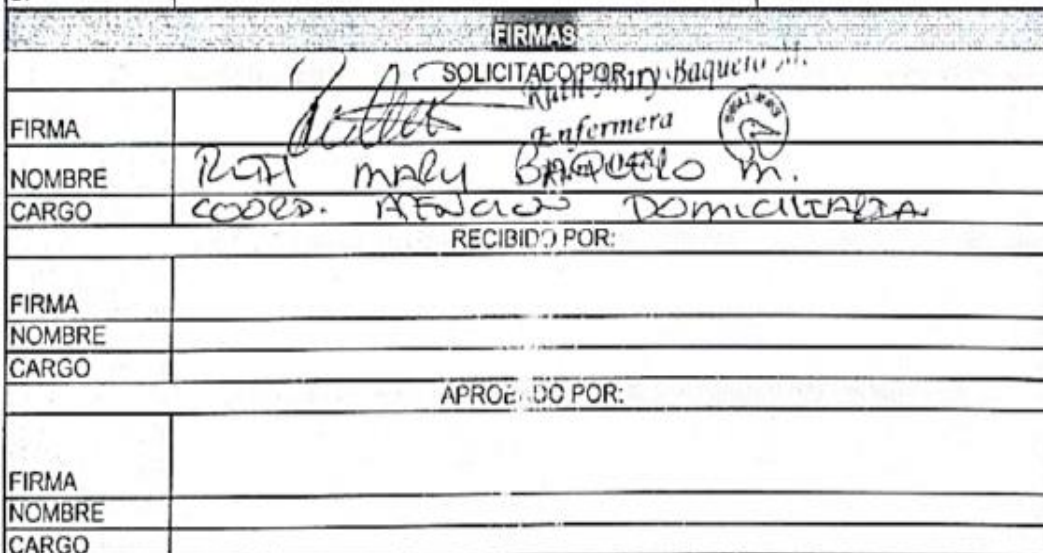 FIRMAS
SOLICITADO POR:
Ruth Mary Baquero M.
Enfermera
FIRMA
NOMBRE RUTH MARY BAQUERO M.
CARGO COORD. ATENCION DOMICILIARIA
RECIBIDO POR:
FIRMA
NOMBRE
CARGO
APROBADO POR:
FIRMA
NOMBRE
CARGO